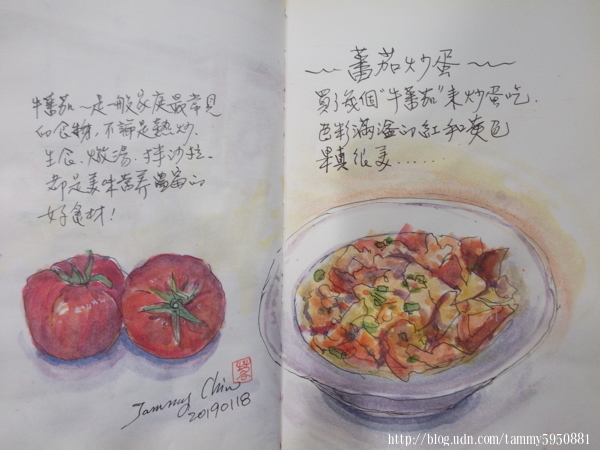 牛蕃茄～是一般家庭最常見
的食材,不論是熱炒.
生食、燉湯、拌沙拉.
都是美味營養豐富的
好食材!
Tammy Chiu
20190118
～蕃茄炒蛋～
買了幾個"牛蕃茄"來炒蛋吃.
色彩滿溢的紅和黃色
果真很美......
http://blog.udn.com/tammy5950881